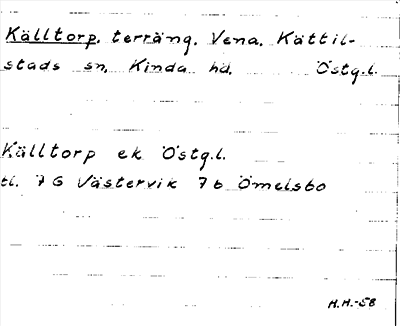 Källtorp, terräng, Vena, Kättil-
stads sn, Kinda hd, Östg.l.
Källtorp ek Östg.l.
tl. 7 G Västervik 7 b Ömelsbo
H.H.-58